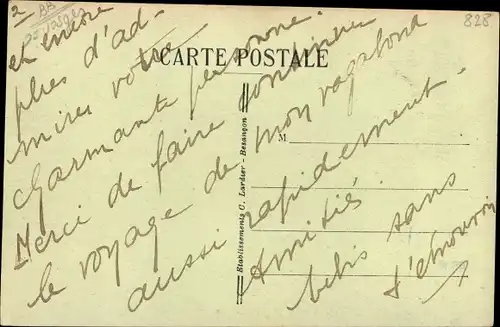 2
828
CARTE POSTALE
Etablissements C. Lardier - Besançon
M
et encore
plus d'ad-
mirer votre
charmante personne.
Merci de faire continuer
le voyage de mon vagabond
aussi rapidement.
Amitiés
sans